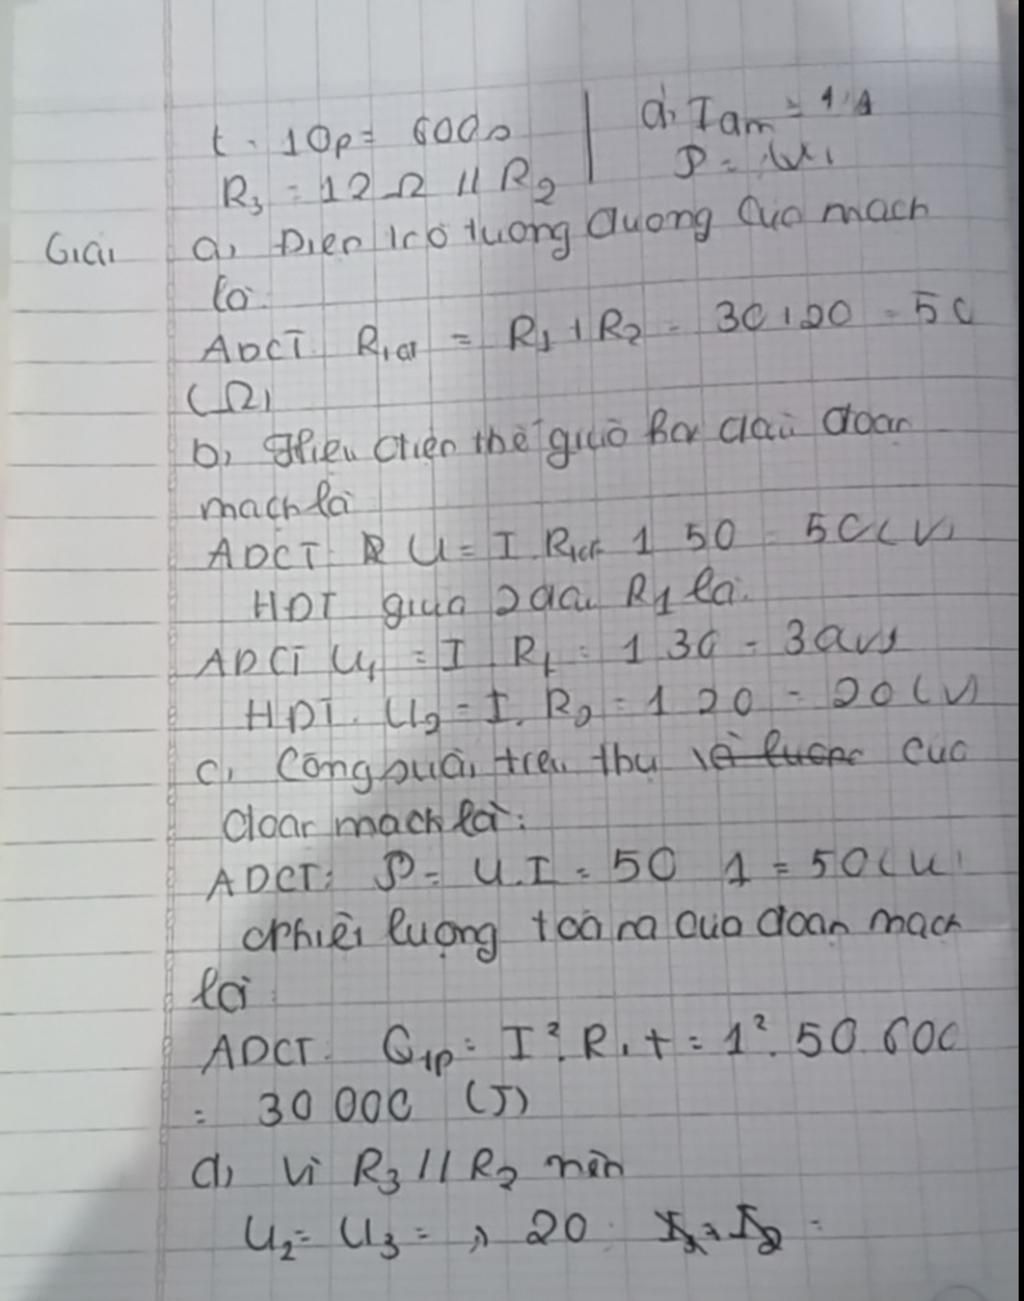 t = 10p = 600s | d, I am = ?
R3 = 12 Ω // R2 P = ?
Giải a, Điện trở tương đương của mạch
là:
ADCT: Rtđ = R1 + R2 = 30+20 = 50
(Ω)
b, Hiệu điện thế giữa hai đầu đoạn
mạch là
ADCT: U = I.Rtđ = 1.50 = 50(V)
HĐT giữa 2 đầu R1 là:
ADCT U1 = I.R1 = 1.30 = 30(V)
HĐT. U2 = I.R2 = 1.20 = 20(V)
c, Công suất tiêu thụ của
đoạn mạch là:
ADCT: P = U.I = 50.1 = 50(W)
Nhiệt lượng toả ra của đoạn mạch
là
ADCT: Q = I².R.t = 1².50.600
= 30 000 (J)
d, Vì R3 // R2 nên
U2 = U3 = 20